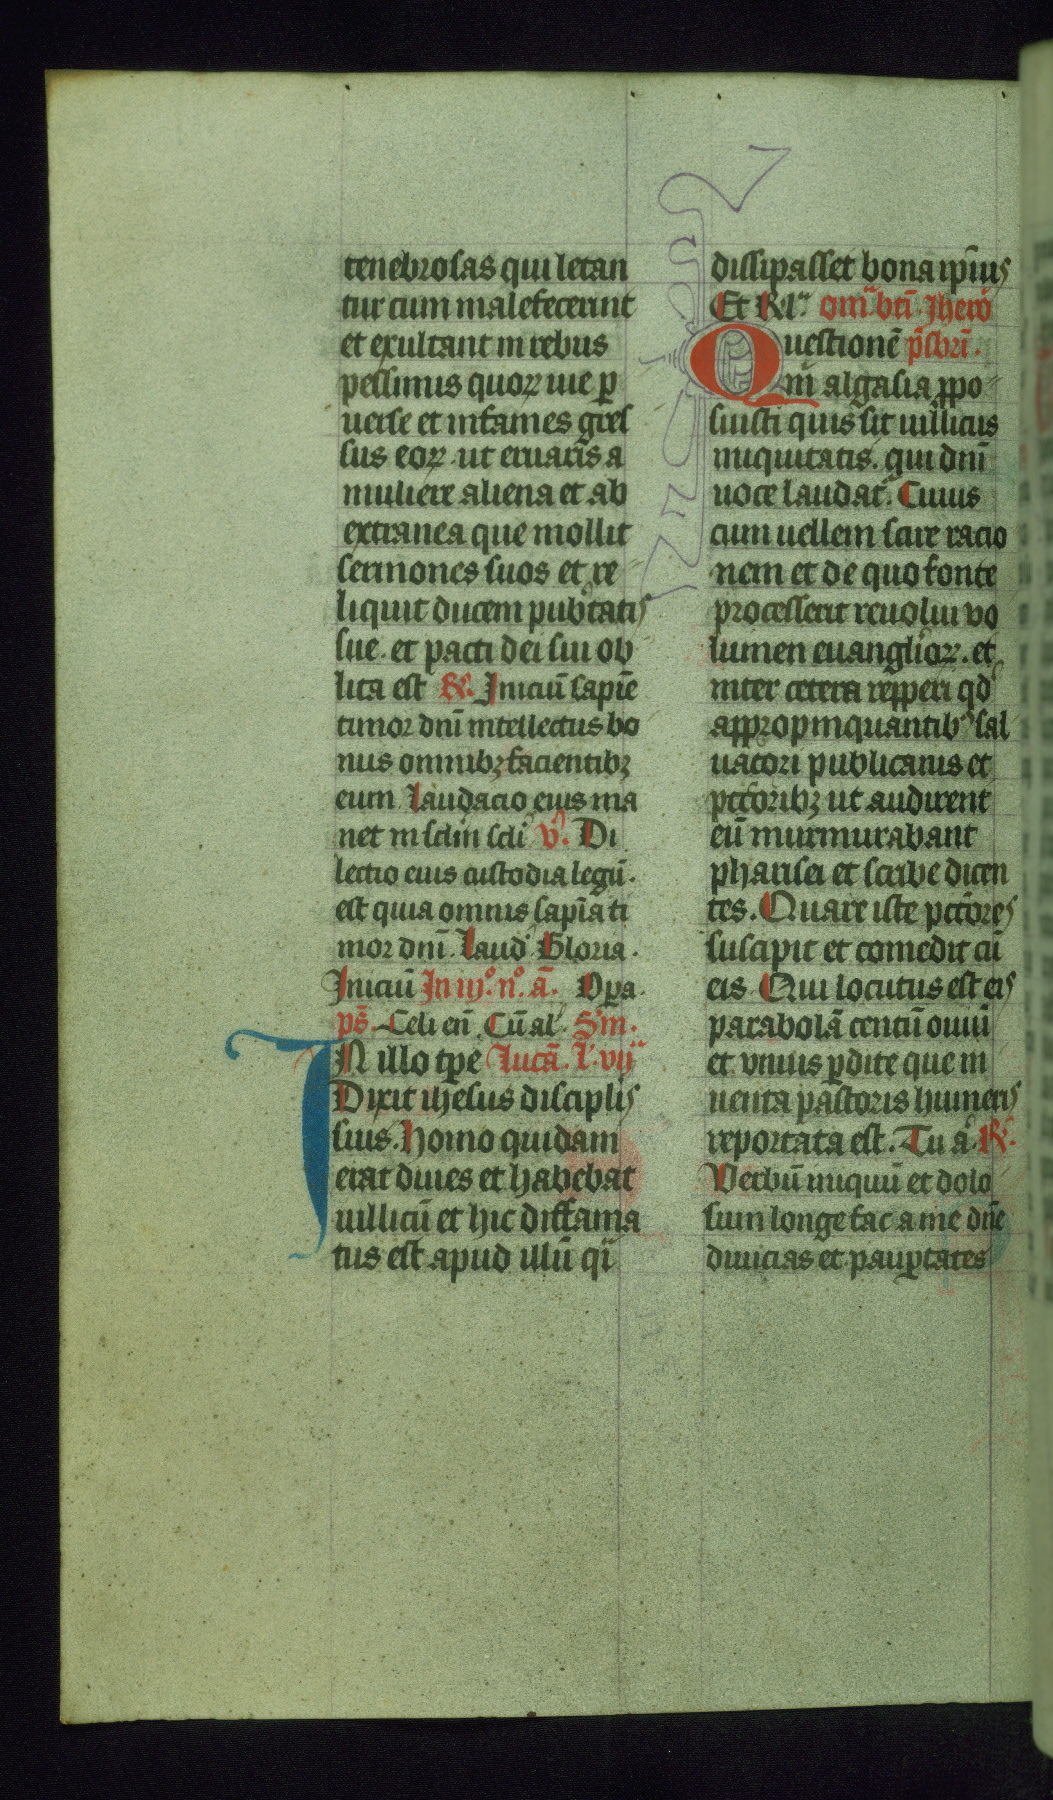 tenebrosas qui letan
tur cum malefecerint
et exultant in rebus
pessimis quoꝝ uie ꝑ
uerse et infames gres
sus eoꝝ. ut eruaris a
muliere aliena et ab
extranea que mollit
sermones suos et re
liquit ducem pub̾tatis
sue. et pacti dei sui ob
lita est ℟. Iniciū sapīe
timor dnī intellectus bo
nus omnibꝫ facientibꝫ
eum Laudacio eius ma
net in sclm̄ scli v̾. Di
lectio eius custodia legū.
est quia omnis sapīa ti
mor dnī. Laud̾ Gloria.
Iniciū In iijº. nº. ā. Oꝑa.
pˢ̄. Celi en̄ Cū al̾.
IN illo tꝑe Lucā.
Dixit ihesus disciplis
suis. Homo quidam
erat diues et habebat
uillicū et hic diffama
tus est apud illū q̄i
dissipasset bona ip̄ius
Et Rl̾ om̄ bt̄i Jhero̾
Questionē p̄sbrī.
m̄ algasia ꝓpo
suisti quis sit uillicus
iniquitatis. qui dnī
uoce laudat̾. Cuius
cum uellem scire racio
nem et de quo fonte
processerit reuolui vo
lumen euanglioꝝ. et
inter cetera reꝑperi qd̾
appropinquantibꝰ sal
uatori publicanis et
pctōribꝫ ut audirent
eū murmurabant
pharisei et scribe dicen
tes. Quare iste pctōres
suscipit et comedit cū
eis. Qui locutus est eis
parabolā centū ouiū
et vnius ꝑdite que in
uenta pastoris humeris
reportata est. Tu a̾. ℟.
Verbū iniquū et dolo
sum longe fac a me dn̄e
diuicias et pauꝑtates